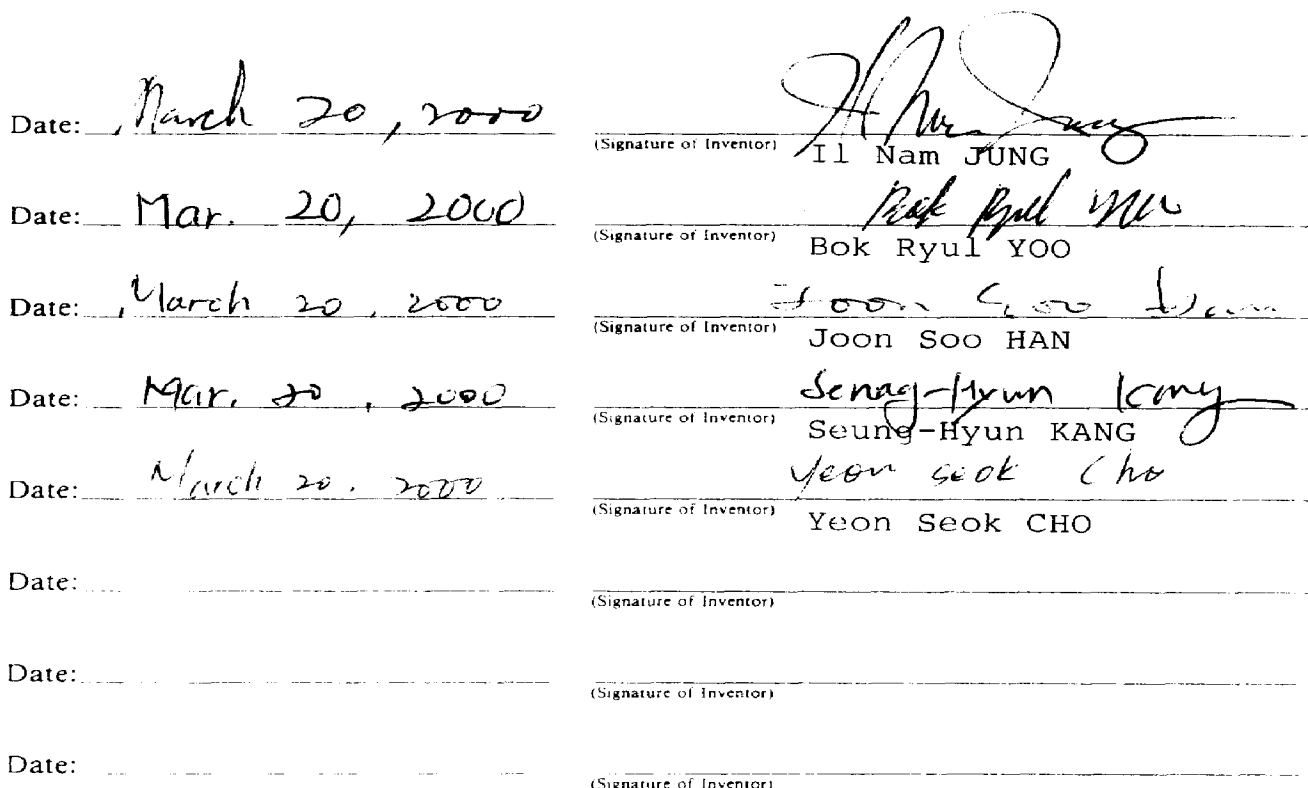 Date: March 20, 2000 Il Nam Jung
(Signature of Inventor) Il Nam JUNG
Date: Mar. 20, 2000 Bok Ryul Yoo
(Signature of Inventor) Bok Ryul YOO
Date: March 20, 2000 Joon Soo Han
(Signature of Inventor) Joon Soo HAN
Date: Mar. 20, 2000 Seung-Hyun Kang
(Signature of Inventor) Seung-Hyun KANG
Date: March 20. 2000 Yeon Seok Cho
(Signature of Inventor) Yeon Seok CHO
Date:
(Signature of Inventor)
Date:
(Signature of Inventor)
Date:
(Signature of Inventor)